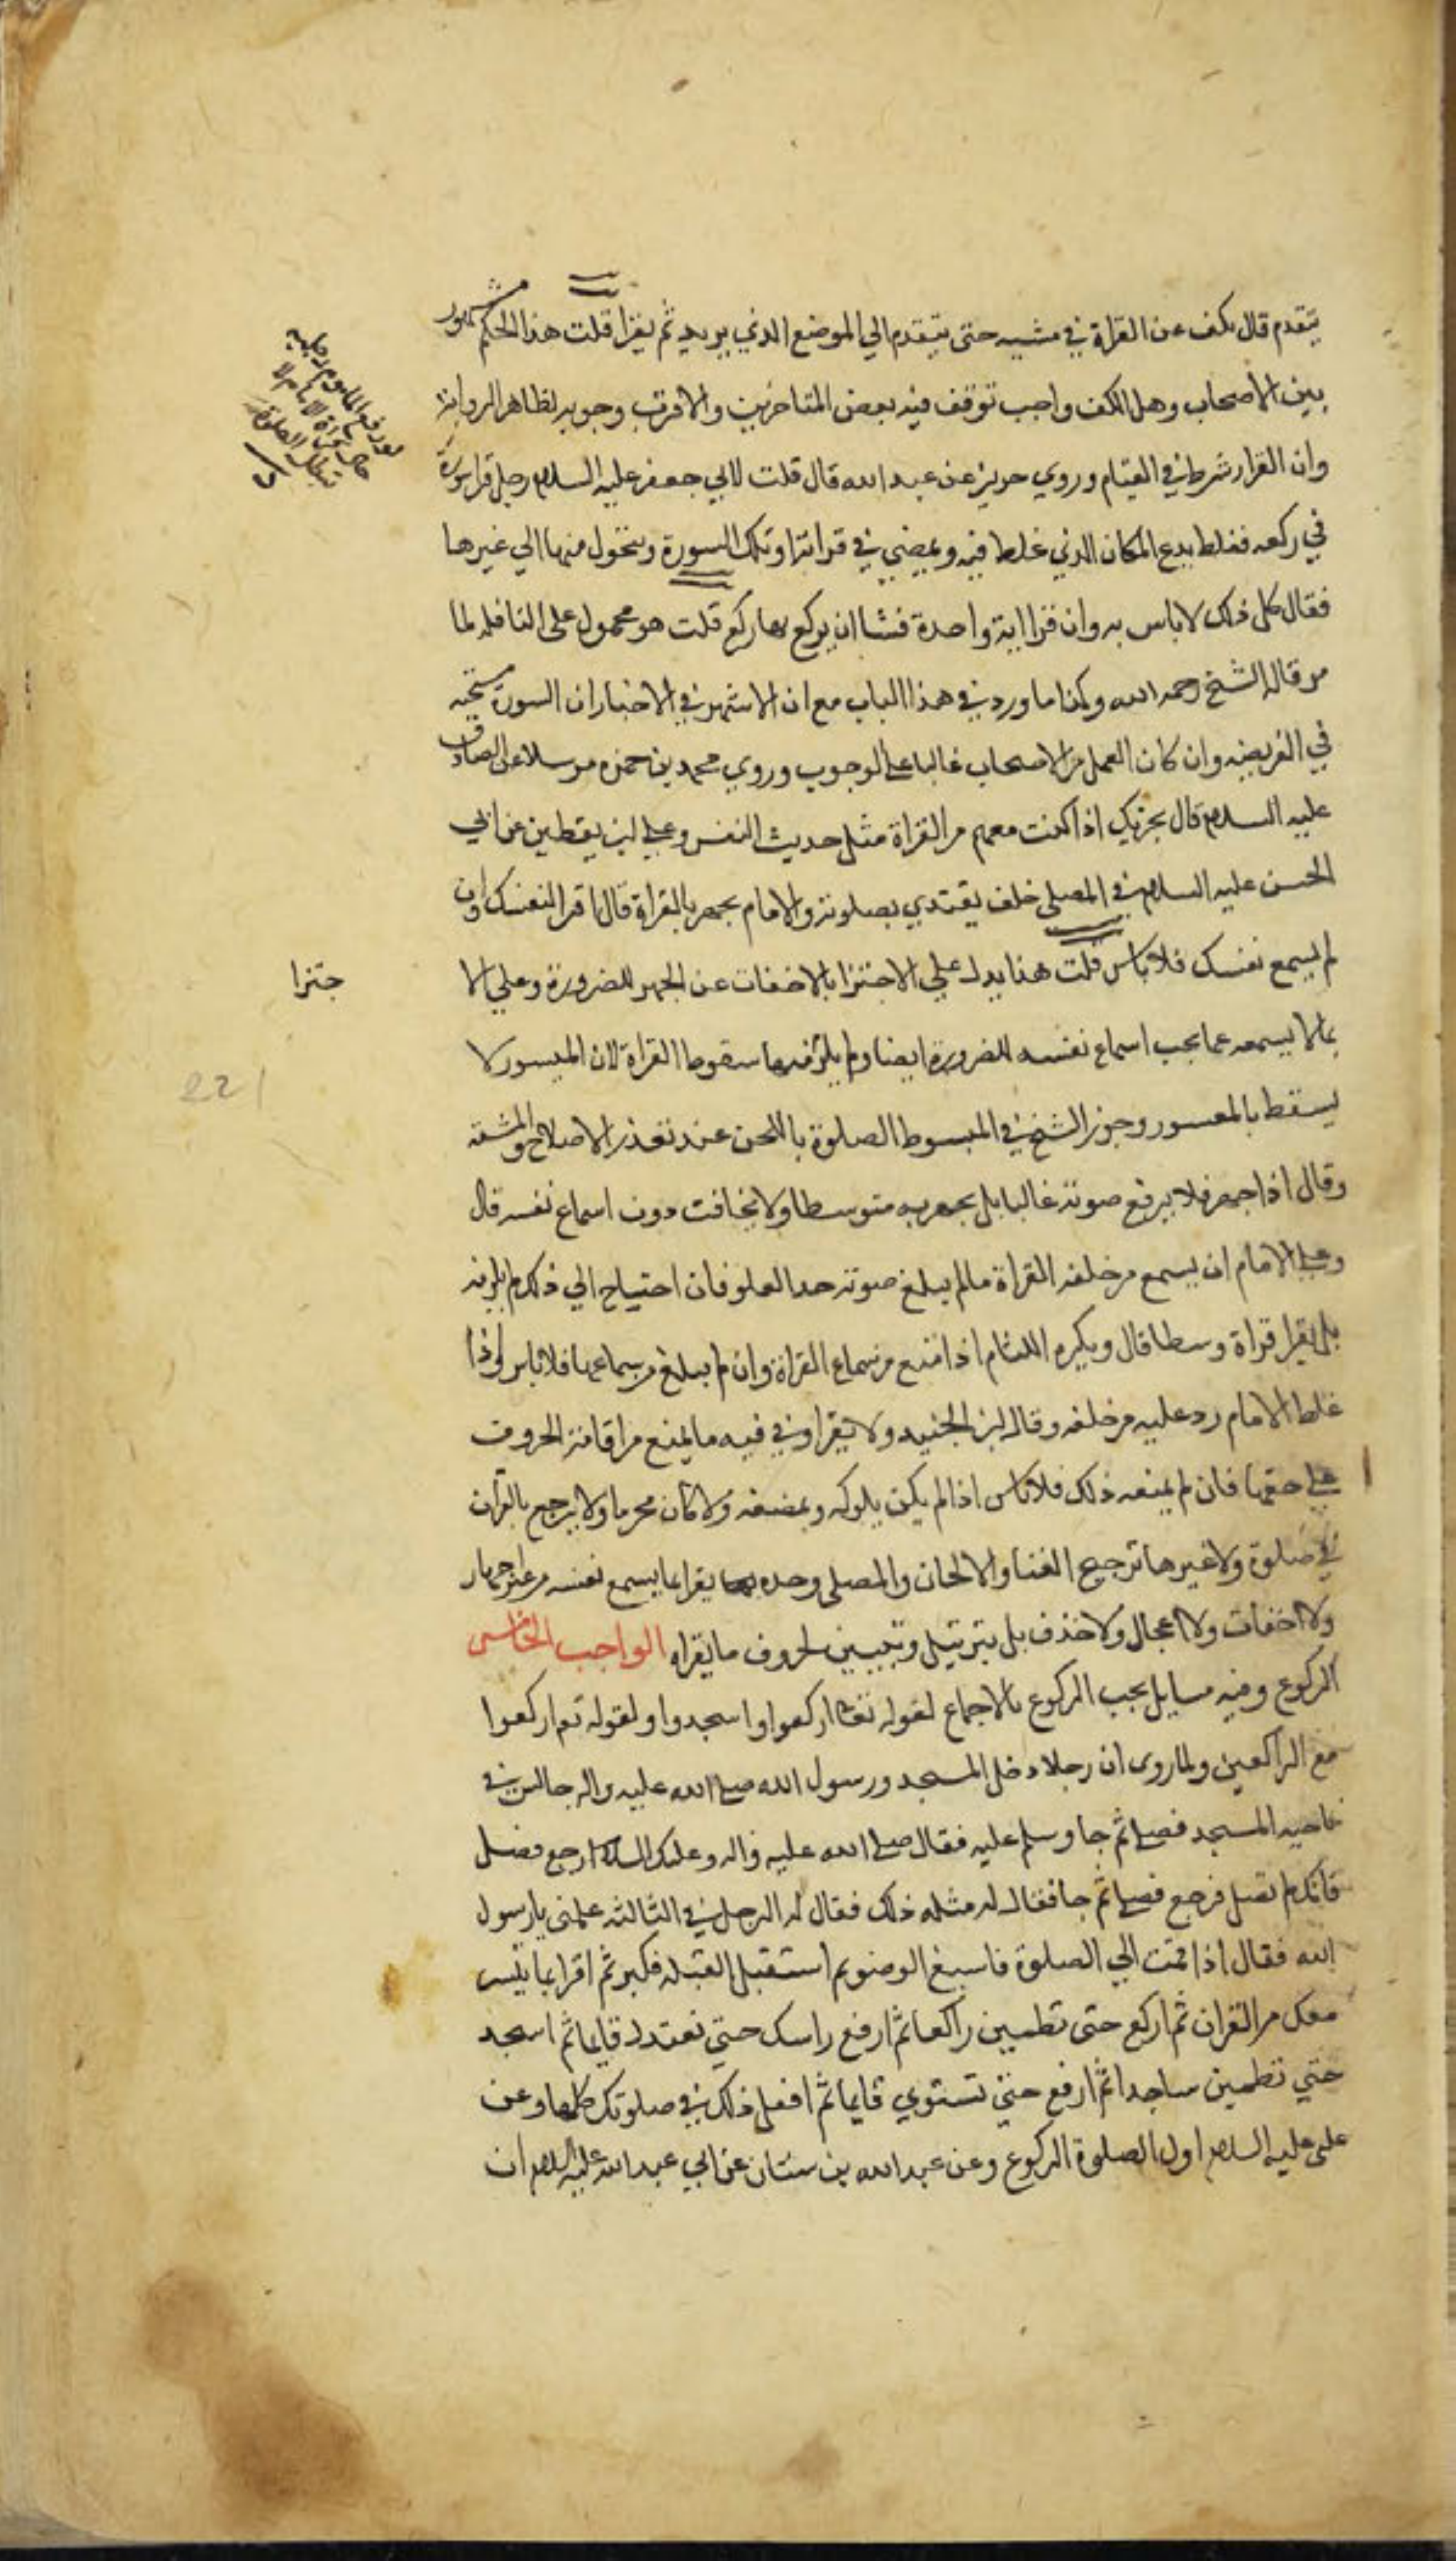 يتقدم قال يكف عن القراة في مشيه حتى يتقدم الي الموضع الذي يريد ثم يقرا قلت هذا الحكم مشهور
بين الاصحاب وهل الكف واجب توقف فيه بعض المتاخرين والاقرب وجوبه لظاهر الرواية
وان القرار شرط في القيام وروي حريز عن عبد الله قال قلت لابي جعفر عليه السلام رجل قرا سورة
في ركعه فغلط يدع المكان الذي غلط فيه ويمضي في قراته او تلك السورة ويتحول منها الي غيرها
فقال كل ذلك لا باس به وان قرا اية واحدة فشا ان يركع بها ركع قلت هو محمول على النافله لما
مر قاله الشيخ رحمه الله وكذا ما ورد في هذا الباب مع ان الاشهر في الاخبار ان السورة مستحبه
في الفريضه وان كان العمل من الاصحاب غالبا علي الوجوب وروي محمد بن حمزه مرسلا عن الصادق
عليه السلام قال يجزيك اذا كنت معهم من القراة مثل حديث النفس وعلي بن يقطين عن ابي
الحسن عليه السلام في المصلي خلف يقتدي بصلوته والامام يجهر بالقراة قال اقرا لنفسك وان
لم يسمع نفسك فلا باس قلت هذا يدل علي الاجتزا بالاخفات عن الجهر للضرورة وعلي الا
جتزا
بما لا يسمعه عما يجب اسماع نفسه للضرورة ايضا ولم يلزم سقوط القراة لان الميسور لا
يسقط بالمعسور وجوز الشيخ في المبسوط الصلوة باللحن عند تعذر الاصلاح والمشقه
وقال اذا جهر فلا يرفع صوته غالبا بل يجهر به متوسطا ولا يخافت دون اسماع نفسه قال
وعلي الامام ان يسمع من خلفه القراة مالم يبلغ صوته حد العلو فان احتياج الي ذلك لم يلزمه
بل يقرا قراة وسطا قال ويكره اللثام اذا منع من سماع القراة وان لم يبلغ من سماعها فلا باس واذا
غلط الامام رد عليه من خلفه وقال ابن الجنيد ولا يقرا وفي فيه ما يمنع من اقامة الحروف
علي حقها فان لم يمنعه ذلك فلا باس اذا لم يكن يلوكه ويمضغه ولا كان محرما ولا يرجع بالقران
في صلوة ولا غيرها ترجيع الغنا والالحان والمصلي وحده يقرا بما يسمع نفسه من غير اجهار
ولا اخفات ولا اعجال ولا حذف بل بترتيل وتبيين لحروف ما يقراه الواجب الخامس
الركوع وفيه مسايل يجب الركوع بالاجماع لقوله تعالى اركعوا واسجدوا ولقوله تعم اركعوا
مع الراكعين ولما روى ان رجلا دخل المسجد ورسول الله صلي الله عليه واله جالس في
ناحيه المسجد فصلي ثم جا وسلم عليه فقال صلي الله عليه واله وعليك السلام ارجع فصل
فانك لم تصل فرجع فصلي ثم جا فقال له مثله ذلك فقال له الرجل في الثالثه علمنى يا رسول
الله فقال اذا قمت الي الصلوة فاسبغ الوضو ثم استقبل القبله فكبر ثم اقرا بما تيسر
معك من القران ثم اركع حتى تطمين راكعا ثم ارفع راسك حتي تعتدل قايما ثم اسجد
حتي تطمين ساجدا ثم ارفع حتي تستوي قايما ثم افعل ذلك في صلوتك كلها وعن
على عليه السلام اول الصلوة الركوع وعن عبد الله بن سنان عن ابي عبد الله عليه السلام ان
221